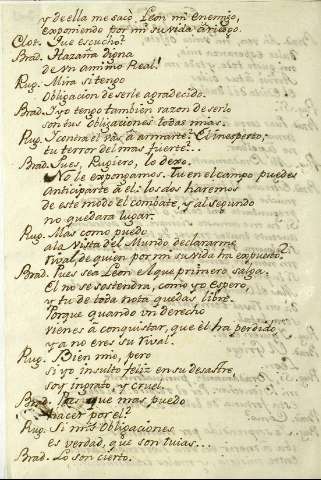 y de ella me sacò Leon mi enemigo,
exponiendo por mi su vida à riesgo.
Clot. Què escucho?
Brad. Hazaña digna
de un animo Real!
Rug. Mira si tengo
Obligacion de serle agradecido.
Brad. Iyo tengo tambien razon de serlo
son tus Obligaciones todas mias.
Rug. I contra èl vàs à armarte? El inesperto;
tu terror del mas fuerte?..
Brad. Pues, Rugiero, lo dexo.
No le expongamos. Tu en el campo puedes
Anticiparte à èl: los dos haremos
de este modo el combate, y al segundo
no quedarà lugar.
Rug. Mas como puedo
a la Vista del Mundo declararme
rival de quien por mi su vida ha expuesto?
Brad. Pues sea Leon el que primero salga.
El no se sostendrà, como yo espero,
y tu de toda nota quedas libre.
Porque quando un derecho
vienes à conquistar, que èl ha perdido
ya no eres su rival.
Rug. Bien mio, pero
si yo insulto feliz en su desastre,
soy ingrato, y cruel.
Brad. Pues que mas puedo
hacer por èl?
Rug. Si mis Obligaciones
es verdad, que son tuias...
Brad. Lo son cierto.